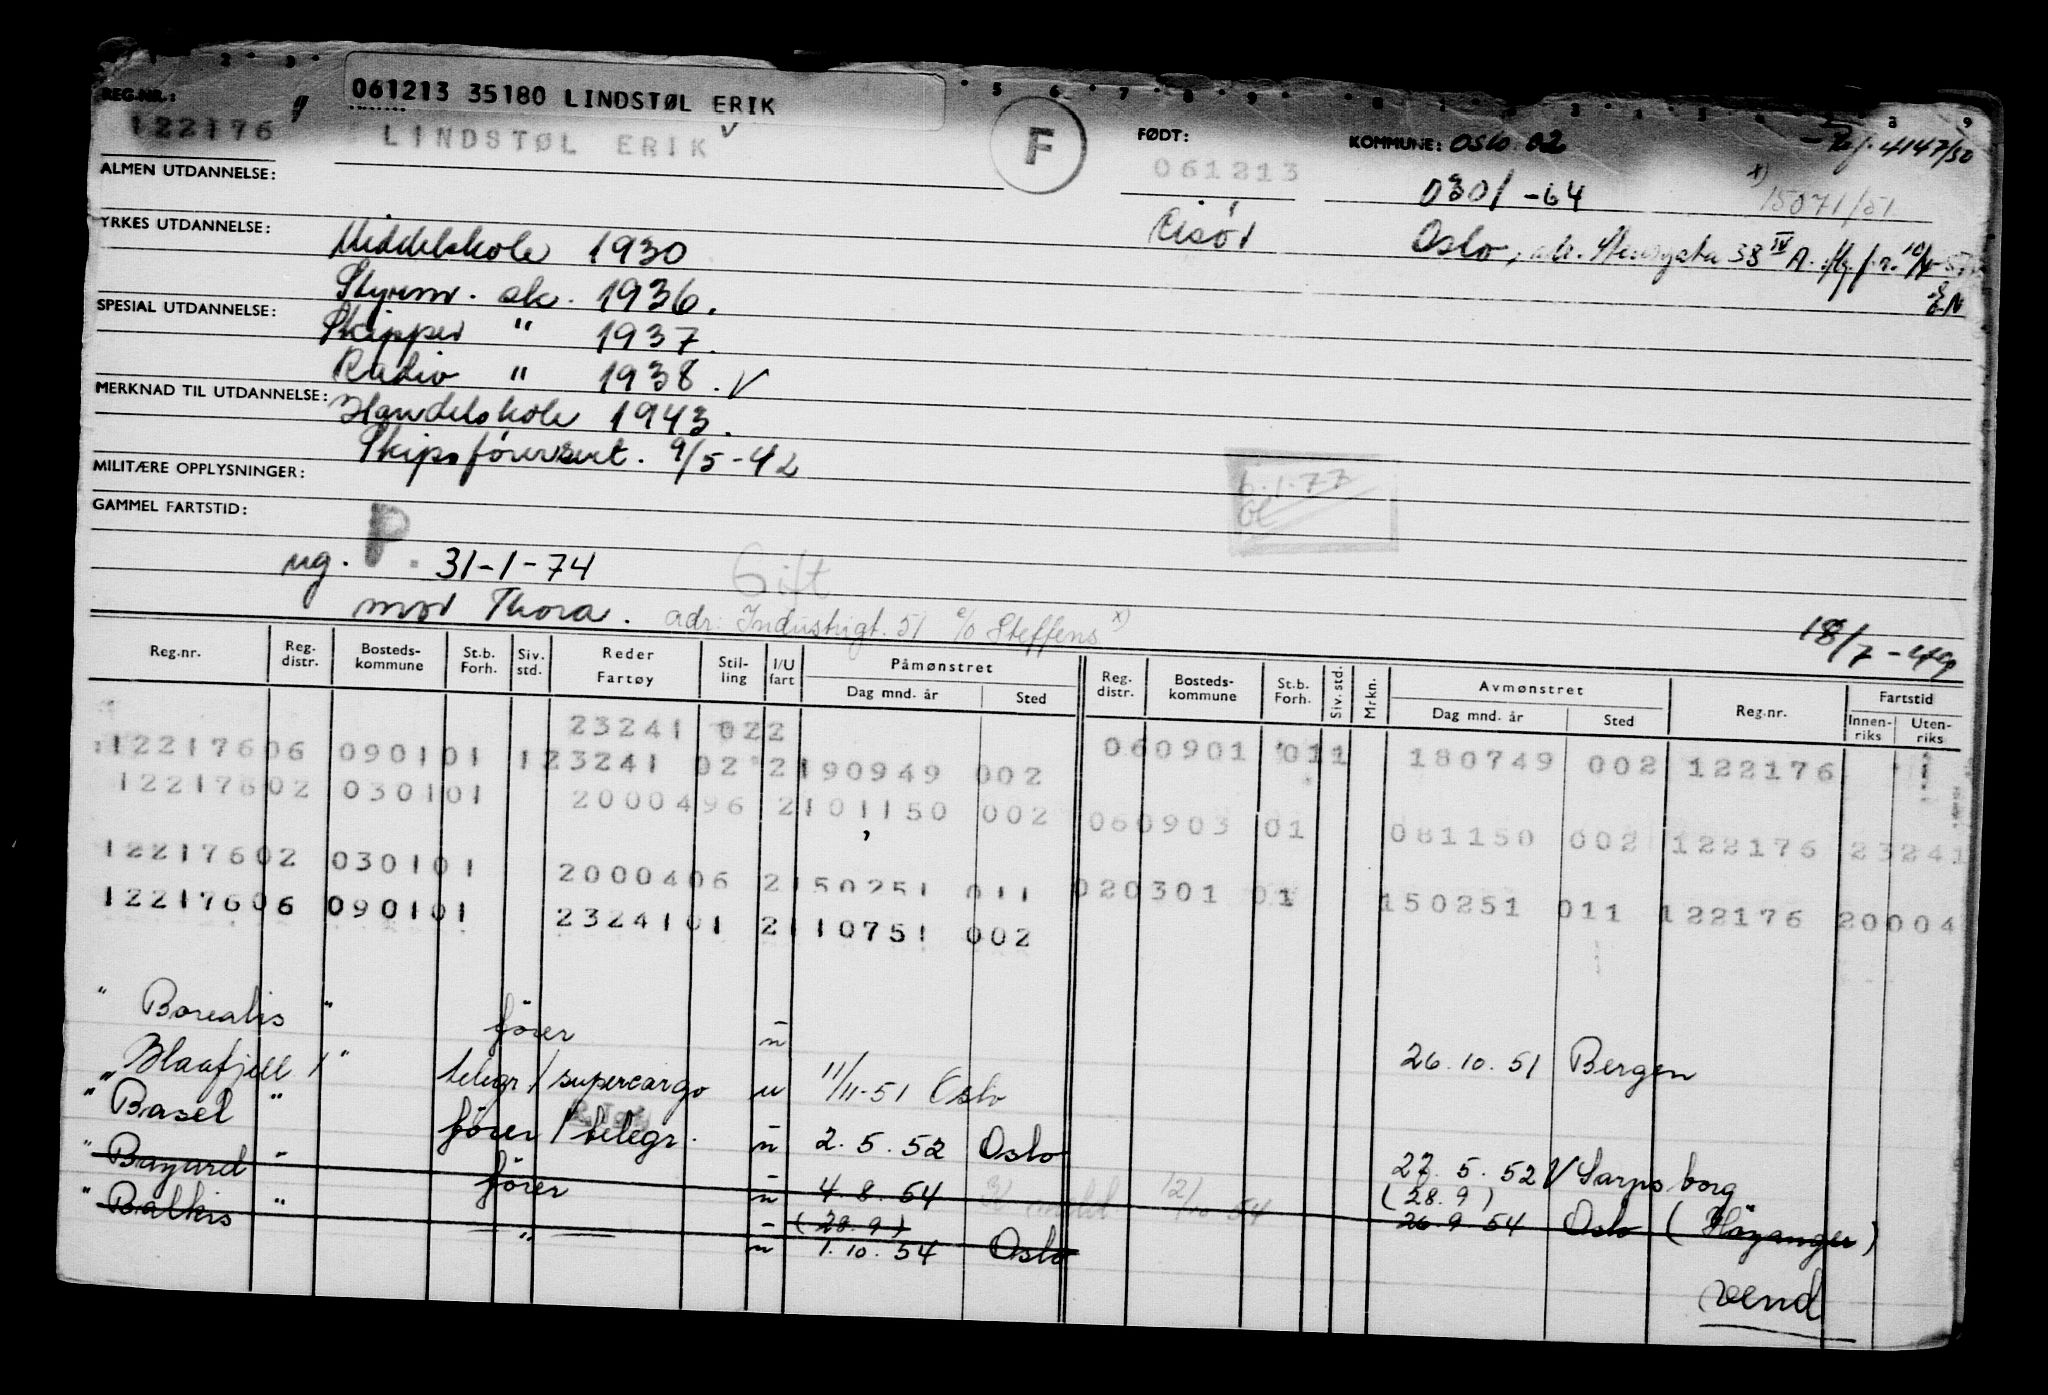 REG.NR.:
061213 35180 LINDSTØL ERIK
122176
LINDSTØL ERIK
F
FØDT:
061213
Risør
KOMMUNE: Oslo. 02
4147/50
0301 -64
x) 15071/51
Oslo, adr. 38 IV
E.N
ALMEN UTDANNELSE:
YRKES UTDANNELSE:
Middelskole 1930
Styrm. sk. 1936.
SPESIAL UTDANNELSE:
Skipper " 1937.
Radio " 1938. V
MERKNAD TIL UTDANNELSE:
Handelskole 1943.
Skipsførersert. 9/5-42
MILITÆRE OPPLYSNINGER:
6.1.77
GAMMEL FARTSTID:
ug. P. 31-1-74
Gift
mor Thora. adr: Industrigt. 51 c/o Steffens x)
18/7-49
Reg.nr. Reg. distr. Bosteds- kommune St.b. Forh. Siv. std. Reder Fartøy Stil- ling I/U fart Påmønstret Dag mnd. år Sted Reg. distr. Bosteds- kommune St.b. Forh. Siv. std. Mrkn. Avmønstret Dag mnd. år Sted Reg.nr. Fartstid Innen- riks Uten- riks
23241 022 060901 011 180749 002 122176
12217606 090101 123241 02 2190949 002
12217602 030101 2000496 2101150 002 060903 01 081150 002 122176 23241
12217602 030101 2000406 2150251 011 020301 01 150251 011 122176 20004
12217606 090101 2324101 2110751 002
" Borealis " fører u 26.10.51 Bergen
" Blaafjell / " telegr / supercargo u 11/11-51 Oslo
" Basel " fører / telegr. u 2.5.52 Oslo 27.5.52 V Sarpsborg
" Bayard " fører u 4.8.54 12/10 54 (28.9) 26.9 54 Oslo (Høyanger)
" Balkis " — " — u (28.9) 1.10.54 Oslo
vend